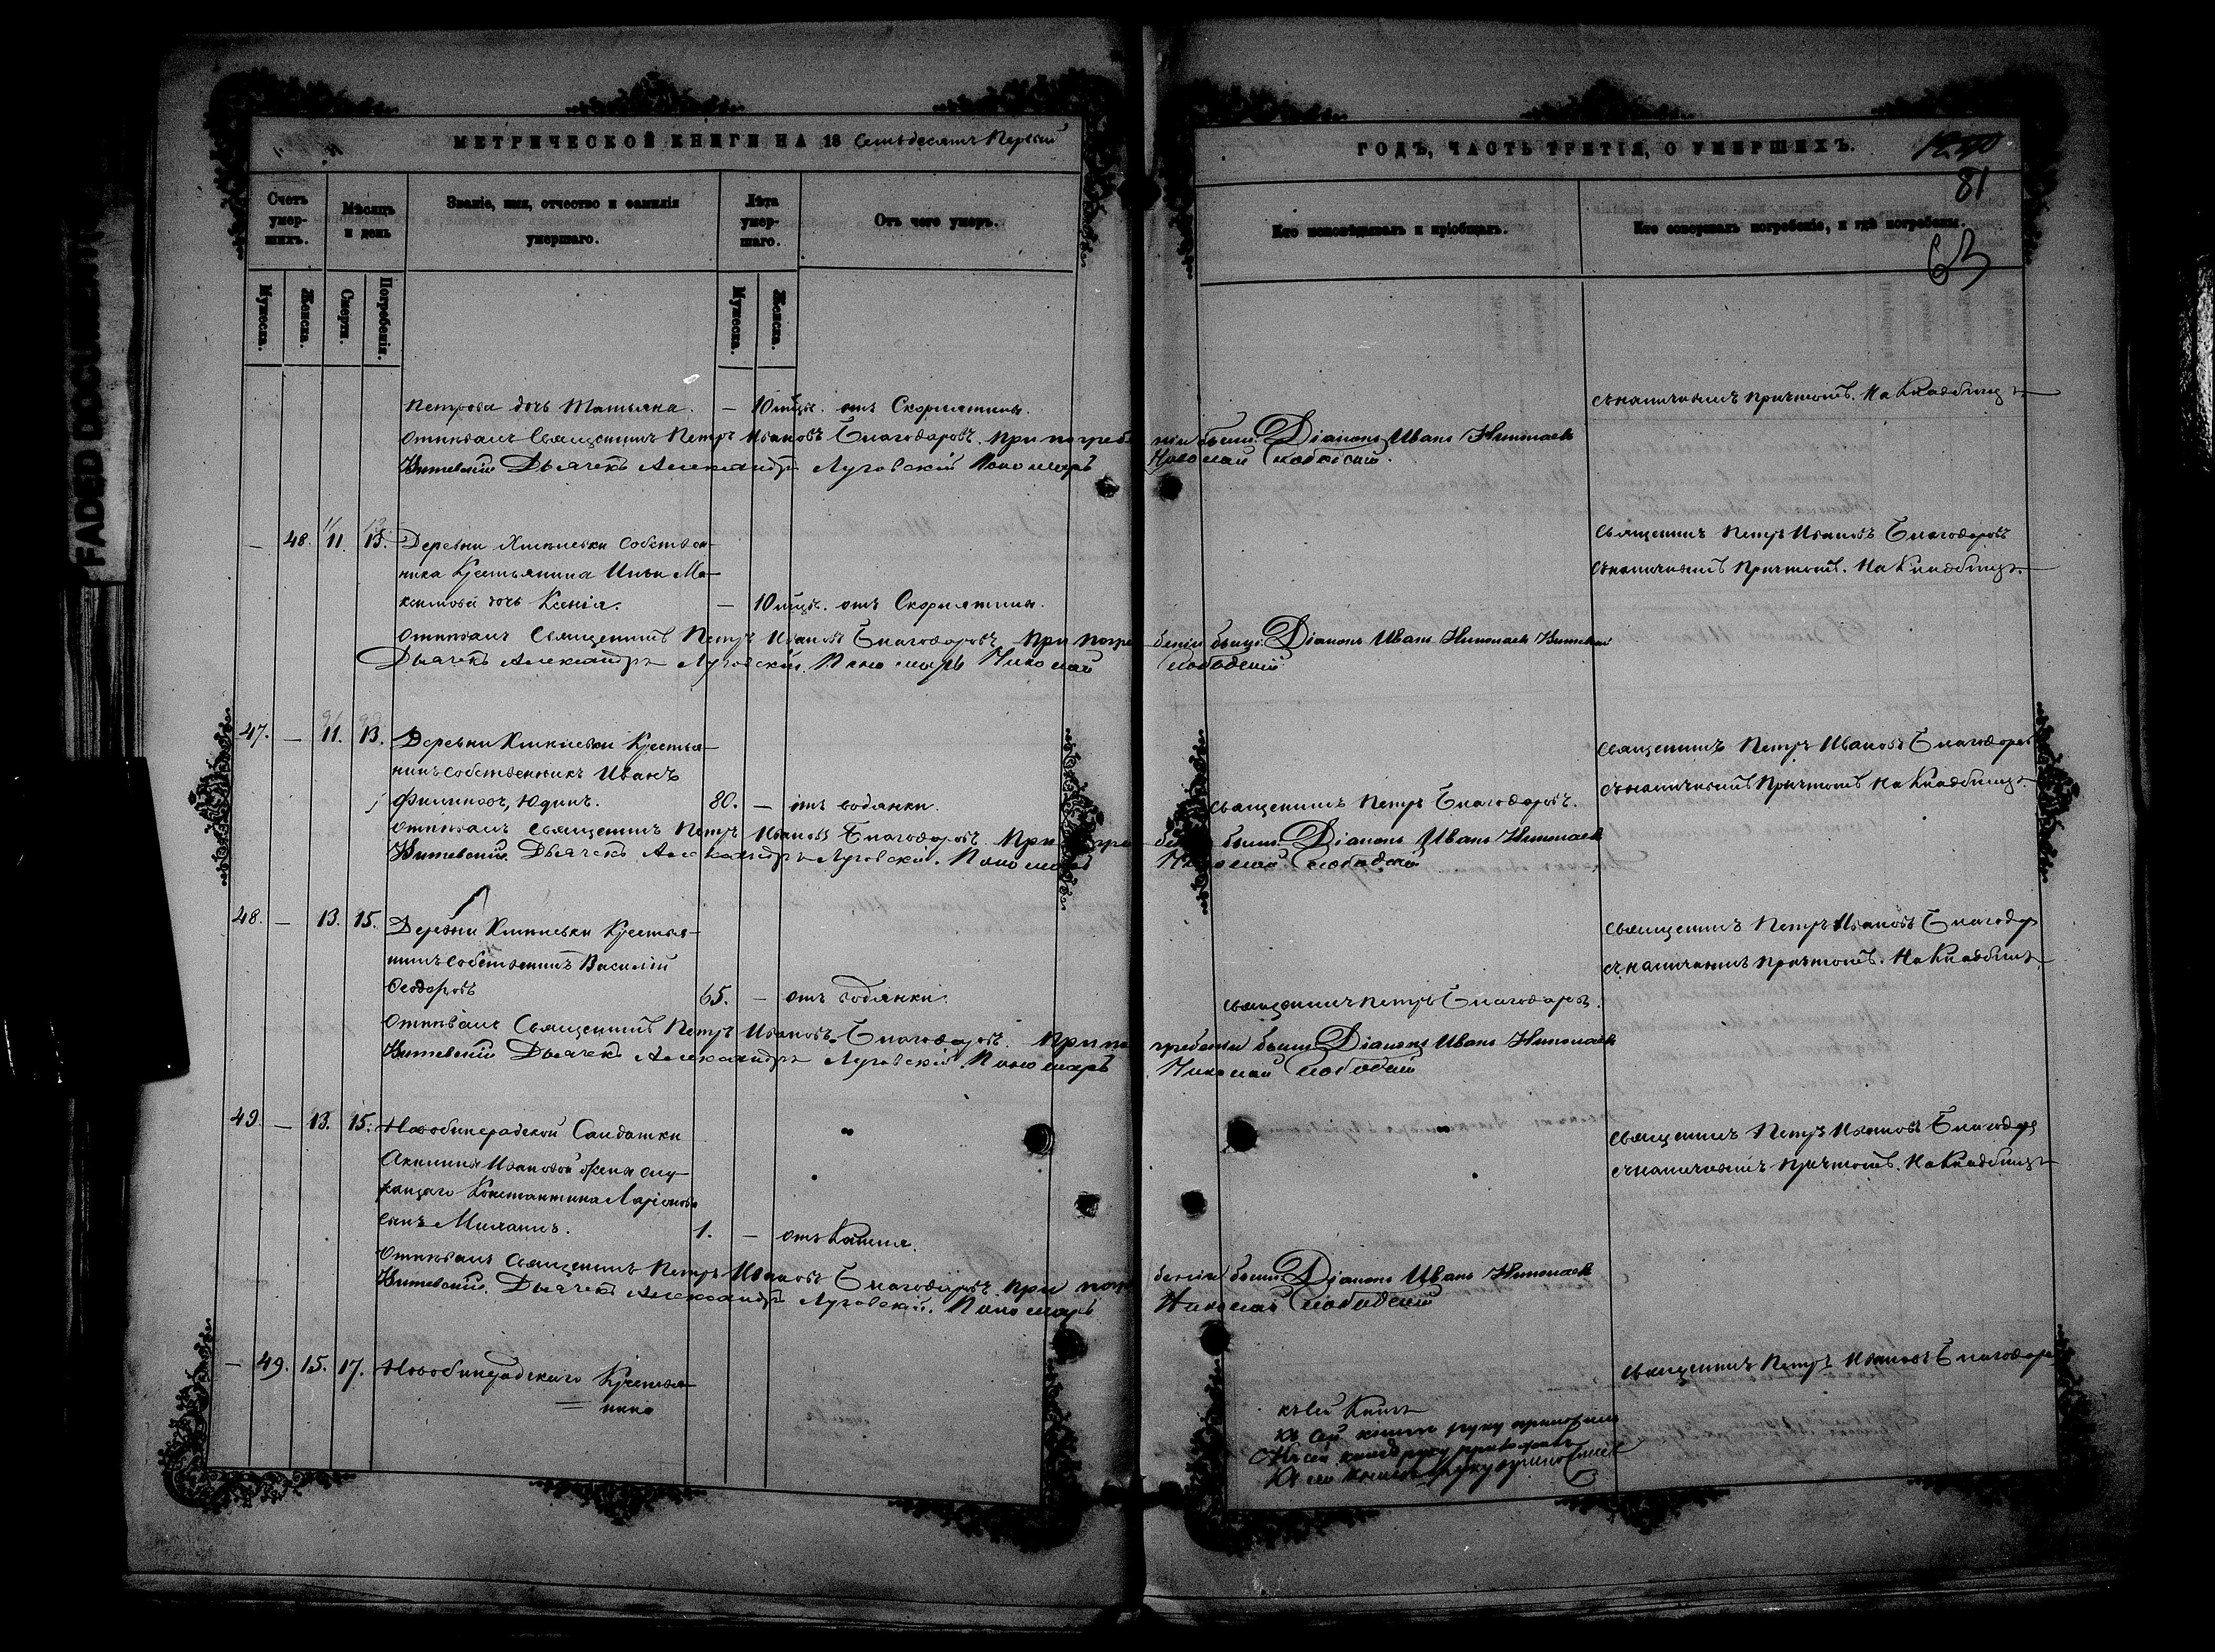 FADED DOCUMENT
МЕТРИЧЕСКОЙ КНИГИ НА 18 Семьдесятъ Первый
ГОДЪ, ЧАСТЬ ТРЕТІЯ, О УМЕРШИХЪ.
81
63
Счетъ умер-шихъ.
Мѣсяцъ и день
Званіе, имя, отчество и фамилія умершаго.
Лѣта умер-шаго.
Отъ чего умеръ.
Кто исповѣдывалъ и пріобщалъ.
Кто совершалъ погребеніе, и гдѣ погребены.
Мужеска.
Женска.
Смерти.
Погребенія.
Мужеска.
Женска.
Петрова дочь Татьяна. — 10 мѣц. отъ Скорлятины.
съ наличнымъ причтомъ. На Кладбищѣ
Отпѣвалъ Священникъ Петръ Ивановъ Благодаровъ. При погребеніи были: Діаконъ Иванъ Николаевъ
Дьячекъ Александръ Луговскій Пономарь Николай Слободскій.
— 48. 11. 13. Деревни собствен-
ника Крестьянина Ильи Ма-
ксимова дочь Ксенія. — 10 мѣц. отъ Скорлятины.
Священникъ Петръ Ивановъ Благодаровъ
съ наличнымъ Причтомъ. На Кладбищѣ.
Отпѣвалъ Священникъ Петръ Ивановъ Благодаровъ. При погребеніи были: Діаконъ Иванъ Николаевъ
Дьячекъ Александръ Луговскій. Пономарь Николай Слободскій.
47. — 11. 13. Деревни Крестья-
нинъ собственникъ Иванъ
Филиповъ, Юдинъ. 80. — отъ водянки.
Священникъ Петръ Благодаровъ.
Священникъ Петръ Ивановъ Благодаров
съ наличнымъ Причтомъ На Кладбищѣ.
Отпѣвалъ Священникъ Петръ Ивановъ Благодаровъ. При погребеніи были: Діаконъ Иванъ Николаевъ
Дьячекъ Александръ Луговскій. Пономарь Николай Слободскій
48. — 13. 15. Деревни Крестья-
нинъ собственникъ Василій
Ѳеодоровъ 65. — отъ водянки.
Священникъ Петръ Благодаровъ.
Священникъ Петръ Ивановъ Благодар
съ наличнымъ причтомъ. На Кладбищѣ
Отпѣвалъ Священникъ Петръ Ивановъ Благодаровъ. При погребеніи были: Діаконъ Иванъ Николаевъ
Дьячекъ Александръ Луговскій. Пономарь Николай Слободскій
49. — 13. 15. Солдатки
Акилины Ивановой жены слу-
жащаго Константина Ларіонова
сынъ 1. — отъ Кашля.
Священникъ Петръ Ивановъ Благодар
съ наличнымъ причтомъ. На Кладбищѣ
Отпѣвалъ Священникъ Петръ Ивановъ Благодаровъ. При погребеніи были: Діаконъ Иванъ Николаевъ
Дьячекъ Александръ Луговскій. Пономарь Николай Слободскій
— 49. 15. 17. Крестья-
нина
Священникъ Петръ Ивановъ Благодаро
къ сей Книгѣ
къ сей книгѣ руку приложилъ